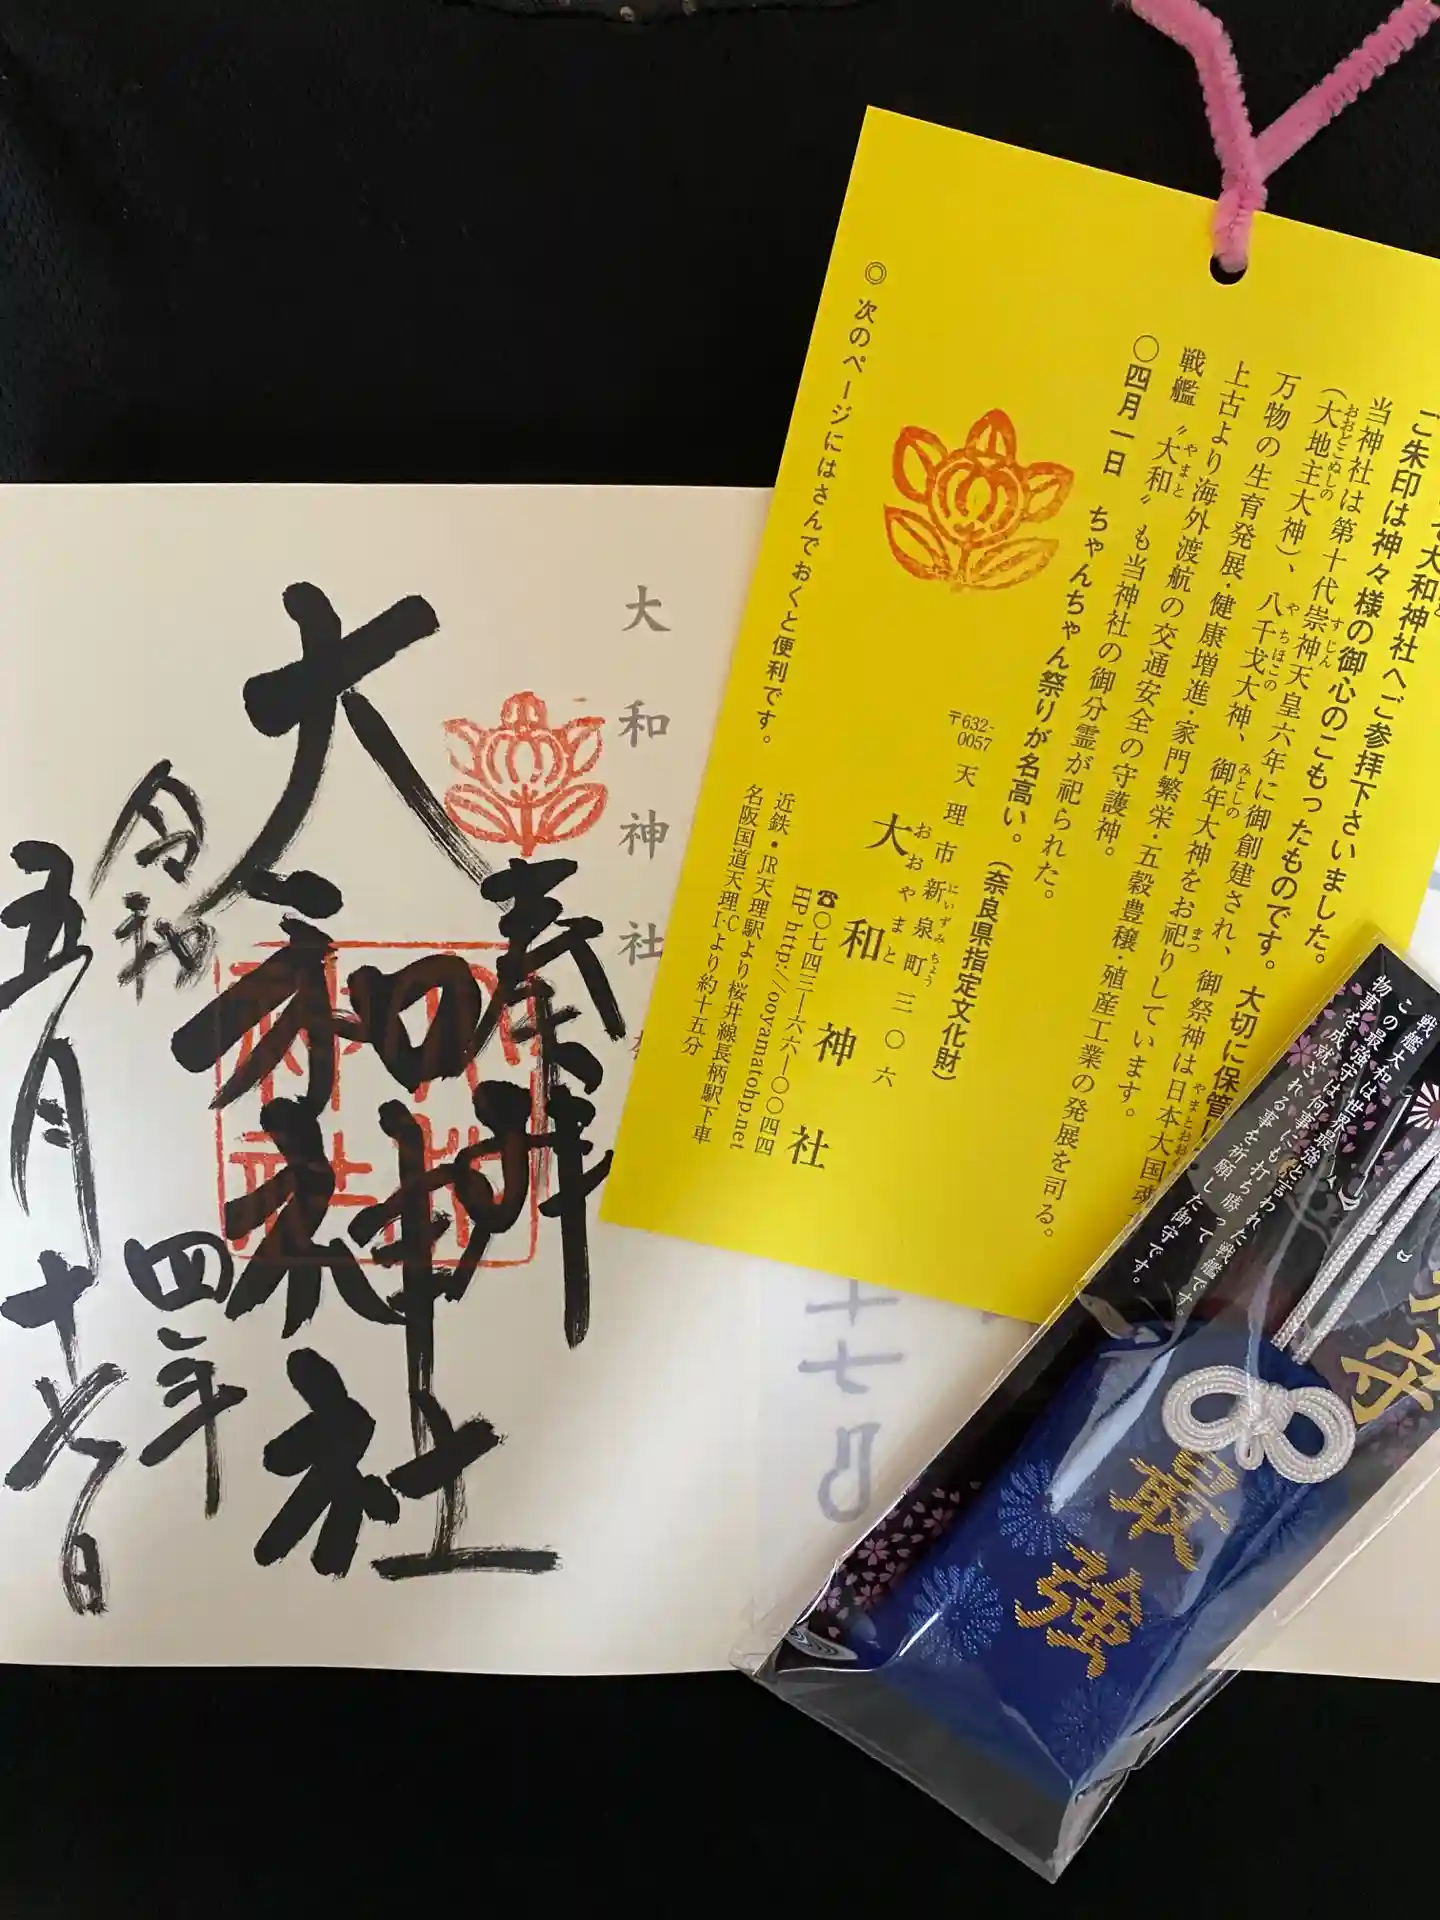 ご朱印は神々様の御心のこもったものです。大切に保管
当神社は第十代崇神天皇六年に御創建され、御祭神は日本大国魂
すじん
（大地主大神）、八千戈大神、御年大神をお祀りしています。
おおどこぬしの
やちほこの
みとしの
まつ
万物の生育発展・健康増進・家門繁栄・五穀豊穣・殖産工業の発展を司る。
上古より海外渡航の交通安全の守護神。
戦艦〝大和〟も当神社の御分霊が祀られた。
やまと
〇四月一日 ちゃんちゃん祭りが名高い。（奈良県指定文化財）
〒632-0057 天理市新泉町三〇六
にいずみちょう
大和神社
おおやまと
☎〇七四三―六六―〇〇四四
HP http://ooyamatohp.net
近鉄・JR天理駅より桜井線長柄駅下車
名阪国道天理I・Cより約十五分
◎ 次のページにはさんでおくと便利です。
大和神社
奉拝
大和神社
令和四年
五月十七日
戦艦大和は世界最強と言われた戦艦です。
この最強守は何事にも打ち勝って
物事を成就される事を祈願した御守です。
最強
守